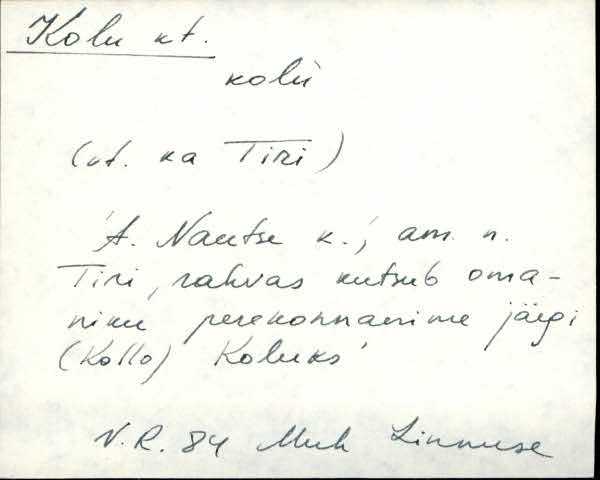 Kolu kt.
kolù
(vt. ka Tiri)
'A. Nautse k.', am. n.
Tiri, rahvas kutsub oma-
niku perekonnanime järgi
(Kollo) Koluks'
V.R. 84 Muh Linnuse